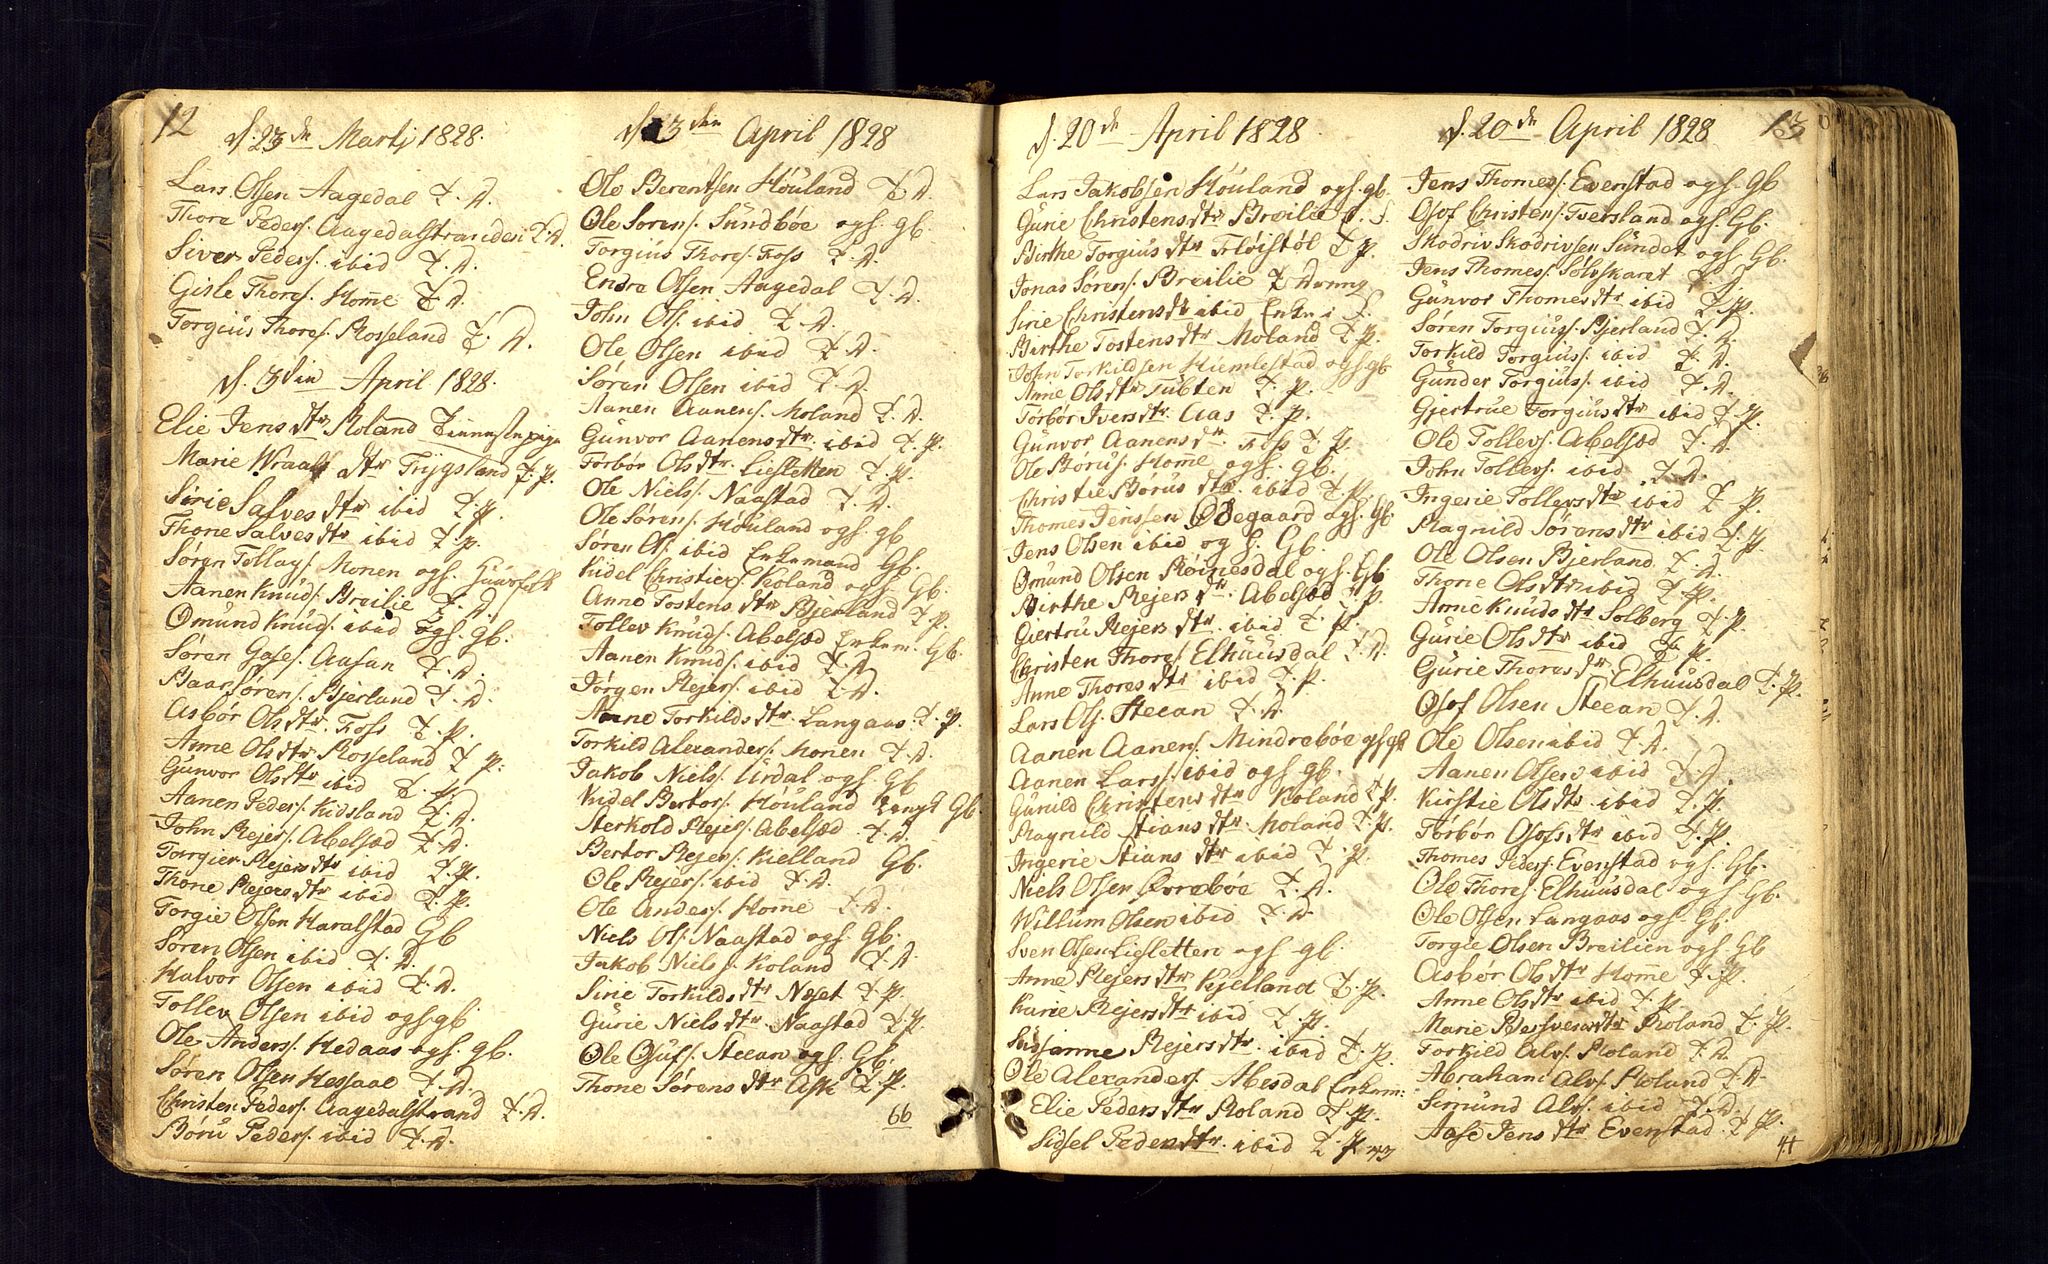 12
d. 23de Martj 1828.
Lars Olsen Aagedal T. D.
Thore Peders. Aagedalstranden T. D.
Siver Peders. ibid T. D.
Gisle Thores. Home T. D.
Torgius Thores. Rosseland T. D.
d. 3din April 1828.
Elie Jensdtr Roland Tienestepige
Marie Wraals dtr Trygsland T. P.
Sirie Salvesdtr ibid T. P.
Thone Salvesdtr ibid T. P.
Søren Tollags. Monen ogs. Huusfolk
Aanen Knuds. Breilie T. D.
Omund Knuds. ibid ogs. Gb.
Søren Goses. Aasan T. D.
Baar Søren s. Bjerland T. D.
Asbør Olsdtr. Foss T. P.
Anne Olsdtr Rosseland T. P.
Gunvor Olsdtr ibid T. P.
Aanen Peders. Kidsland T. D.
John Rejers. Abelsæd T. D.
Torgier Rejersdtr ibid T. P.
Thone Rejersdtr ibid T. P.
Torgie Olsen Haralstad Gb
Søren Olsen ibid T. D.
Halvor Olsen ibid T. D.
Tollev Olsen ibid ogs. gb.
Ole Anders. Hedaas ogs. gb.
Søren Olsen Hessaae T. D.
Christen Peders. Aagedalstrand T. D.
Børu Peders. ibid T. D.
d. 3den April 1828
Ole Berentsen Høuland T. D.
Ole Sørens. Sundbøe ogs. gb.
Torgius Thores. Foss T. D.
Endre Olsen Aagedal T. D.
John Ols. ibid T. D.
Ole Olsen ibid T. D.
Søren Olsen ibid T. D.
Aanen Aanens. Moland T. D.
Gunvor Aanensdtr. ibid T. P.
Torbør Olsdtr. Liesletten T. P.
Ole Niels. Naastad T. D.
Ole Sørens. Høuland ogs. gb
Søren Ols. ibid Enkemand Gb.
Kidel Christies. Koland ogs. Gb.
Anne Tostensdtr Bjerland T. P.
Tollev Knuds. Abelsæd Enkem. Gb.
Aanen Knuds. ibid T. D.
Jørgen Rejers. ibid T. D.
Anne Torkildsdtr. Langaas T. P.
Torkild Alexanders. Monen T. D.
Jakob Niels. Urdal ogs. Gb
Kidel Bertors. Høuland Gb.
Sterkold Rejers. Abelsæd T. D.
Bertor Rejers. Kielland Gb.
Ole Rejers. ibid T. D.
Ole Anders. Home T. D.
Niels Ols. Naastad ogs. Gb.
Jakob Niels s. Koland T. D.
Sirie Torkildsdtr Næset T. P.
Gurie Nielsdtr. Naastad T. P.
Ole Osufs. Steean ogs. Gb.
Thone Sørensdtr Ask T. P.
66
d. 20de April 1828.
Lars Jakobsen Høuland ogs. gb.
Gurie Christensdtr Breilie
Birthe Torgiusdtr Fløistøl T. P.
Jonas Sørens. Breilie T Dreng
Sirie Christensdtr ibid Enke
Birthe Tostensdtr Moland T. P.
John Torkildsen Hiemlestad ogs gb
Anne Olsdtr Tubten T. P.
Torbør Iversdtr. Aas T. P.
Gunvor Aanensdtr. Ass T. P.
Ole Børus. Home ogs. gb.
Christie Børus dtr. ibid T. P.
Thomes Jenssen Ødegaard ogs. Gb.
Jens Olsen ibid og s. Gb.
Omund Olsen Røinesdal ogs. Gb.
Birthe Rejers dtr. Abelsæd T. P.
Giertru Rejers dtr. ibid T. P.
Christen Thores. Elhuusdal T. D.
Anne Thoresdtr ibid T. P.
Lars Ols. Steean T. D.
Aanen Aanens. Mindrebøe ogs gb
Aanen Lars s. ibid ogs. gb.
Gunild Christensdtr Koland T. P.
Ragnild Stiansdtr. Moland T. P.
Ingerie Stians dtr ibid T. P.
Niels Olsen Øvrebøe T. D.
Willum Olsen ibid T. D.
Sven Olsen Liesletten ogs gb.
Anne Rejersdtr Kjelland T. P.
Karie Rejersdtr ibid T. P.
Susanne Rejersdtr. ibid T. P.
Ole Alexanders. Abesdal Enkem:
Elie Pedersdtr Roland T. P.
Sidsel Pedersdtr. ibid T. P. 73
d. 20de April 1828
13
Jens Thomess. Evenstad ogs. Gb
Osof Christens. Tversland ogs. Gb.
Skodriv Skodrivsen Sundet ogs. Gb.
Jens Thomess. Sølvskaret
Gunvor Thomesdtr ibid T. P.
Søren Torgiuss. Bjerland T. D.
Torkild Torgiuss. ibid T. D.
Gunder Torgiuss. ibid T. D.
Gjertrue Torgiusdtr ibid T. P.
Ole Tollevs. Abelsæd T. D.
John Tollevs. ibid T. D.
Ingerie Tollevsdtr ibid T. P.
Ragnild Sørensdtr ibid T. P.
Ole Olsen Bjerland T. D.
Thone Olsdtr ibid T. P.
Anne Knudsdtr Solberg T. P.
Gurie Olsdtr ibid T. P.
Gurie Thoresdtr. Elhuusdal T. P.
Osof Olsen Steean T. D.
Ole Olsen ibid T. D.
Aanen Olsens ibid T. D.
Kirstie Olsdtr ibid T. P.
Torbør Osofsdtr ibid T. P.
Thomes Peders. Evenstad ogs. Gb.
Ole Thores. Elhuusdal ogs. Gb.
Ole Olsen Langaas ogs. Gb.
Torgie Olsen Breilien ogs. Gb
Asbør Olsdtr Home T. P.
Anne Olsdtr ibid T. P.
Marie Roland T. P.
Torkild Alvs. Roland T. D.
Abraham Alvs. Roland T. D.
Simund Alvs. ibid T. D.
Aase Jensdtr Evenstad T. P.